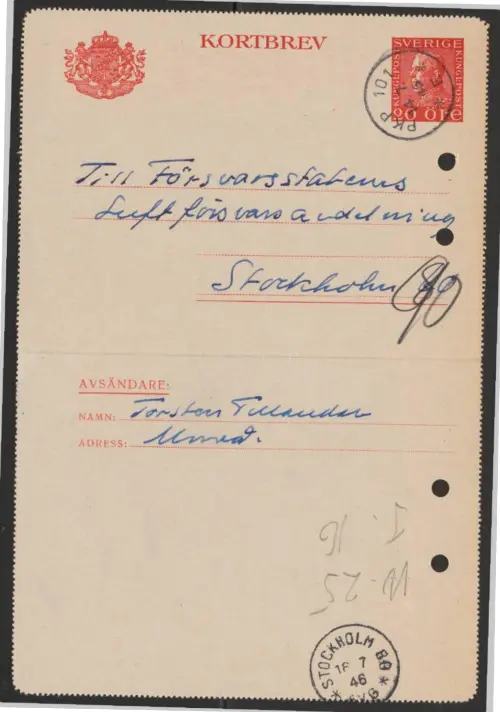 KORTBREV
SVERIGE
KUNGL·POST KUNGL·POST
20 ÖRE
PKP 101
Till Försvarsstabens
Luftförsvarsavdelning
Stockholm 80
90
AVSÄNDARE:
NAMN: Torsten Tillander
ADRESS:
I. 16
25
* STOCKHOLM 80 *
16 7
46